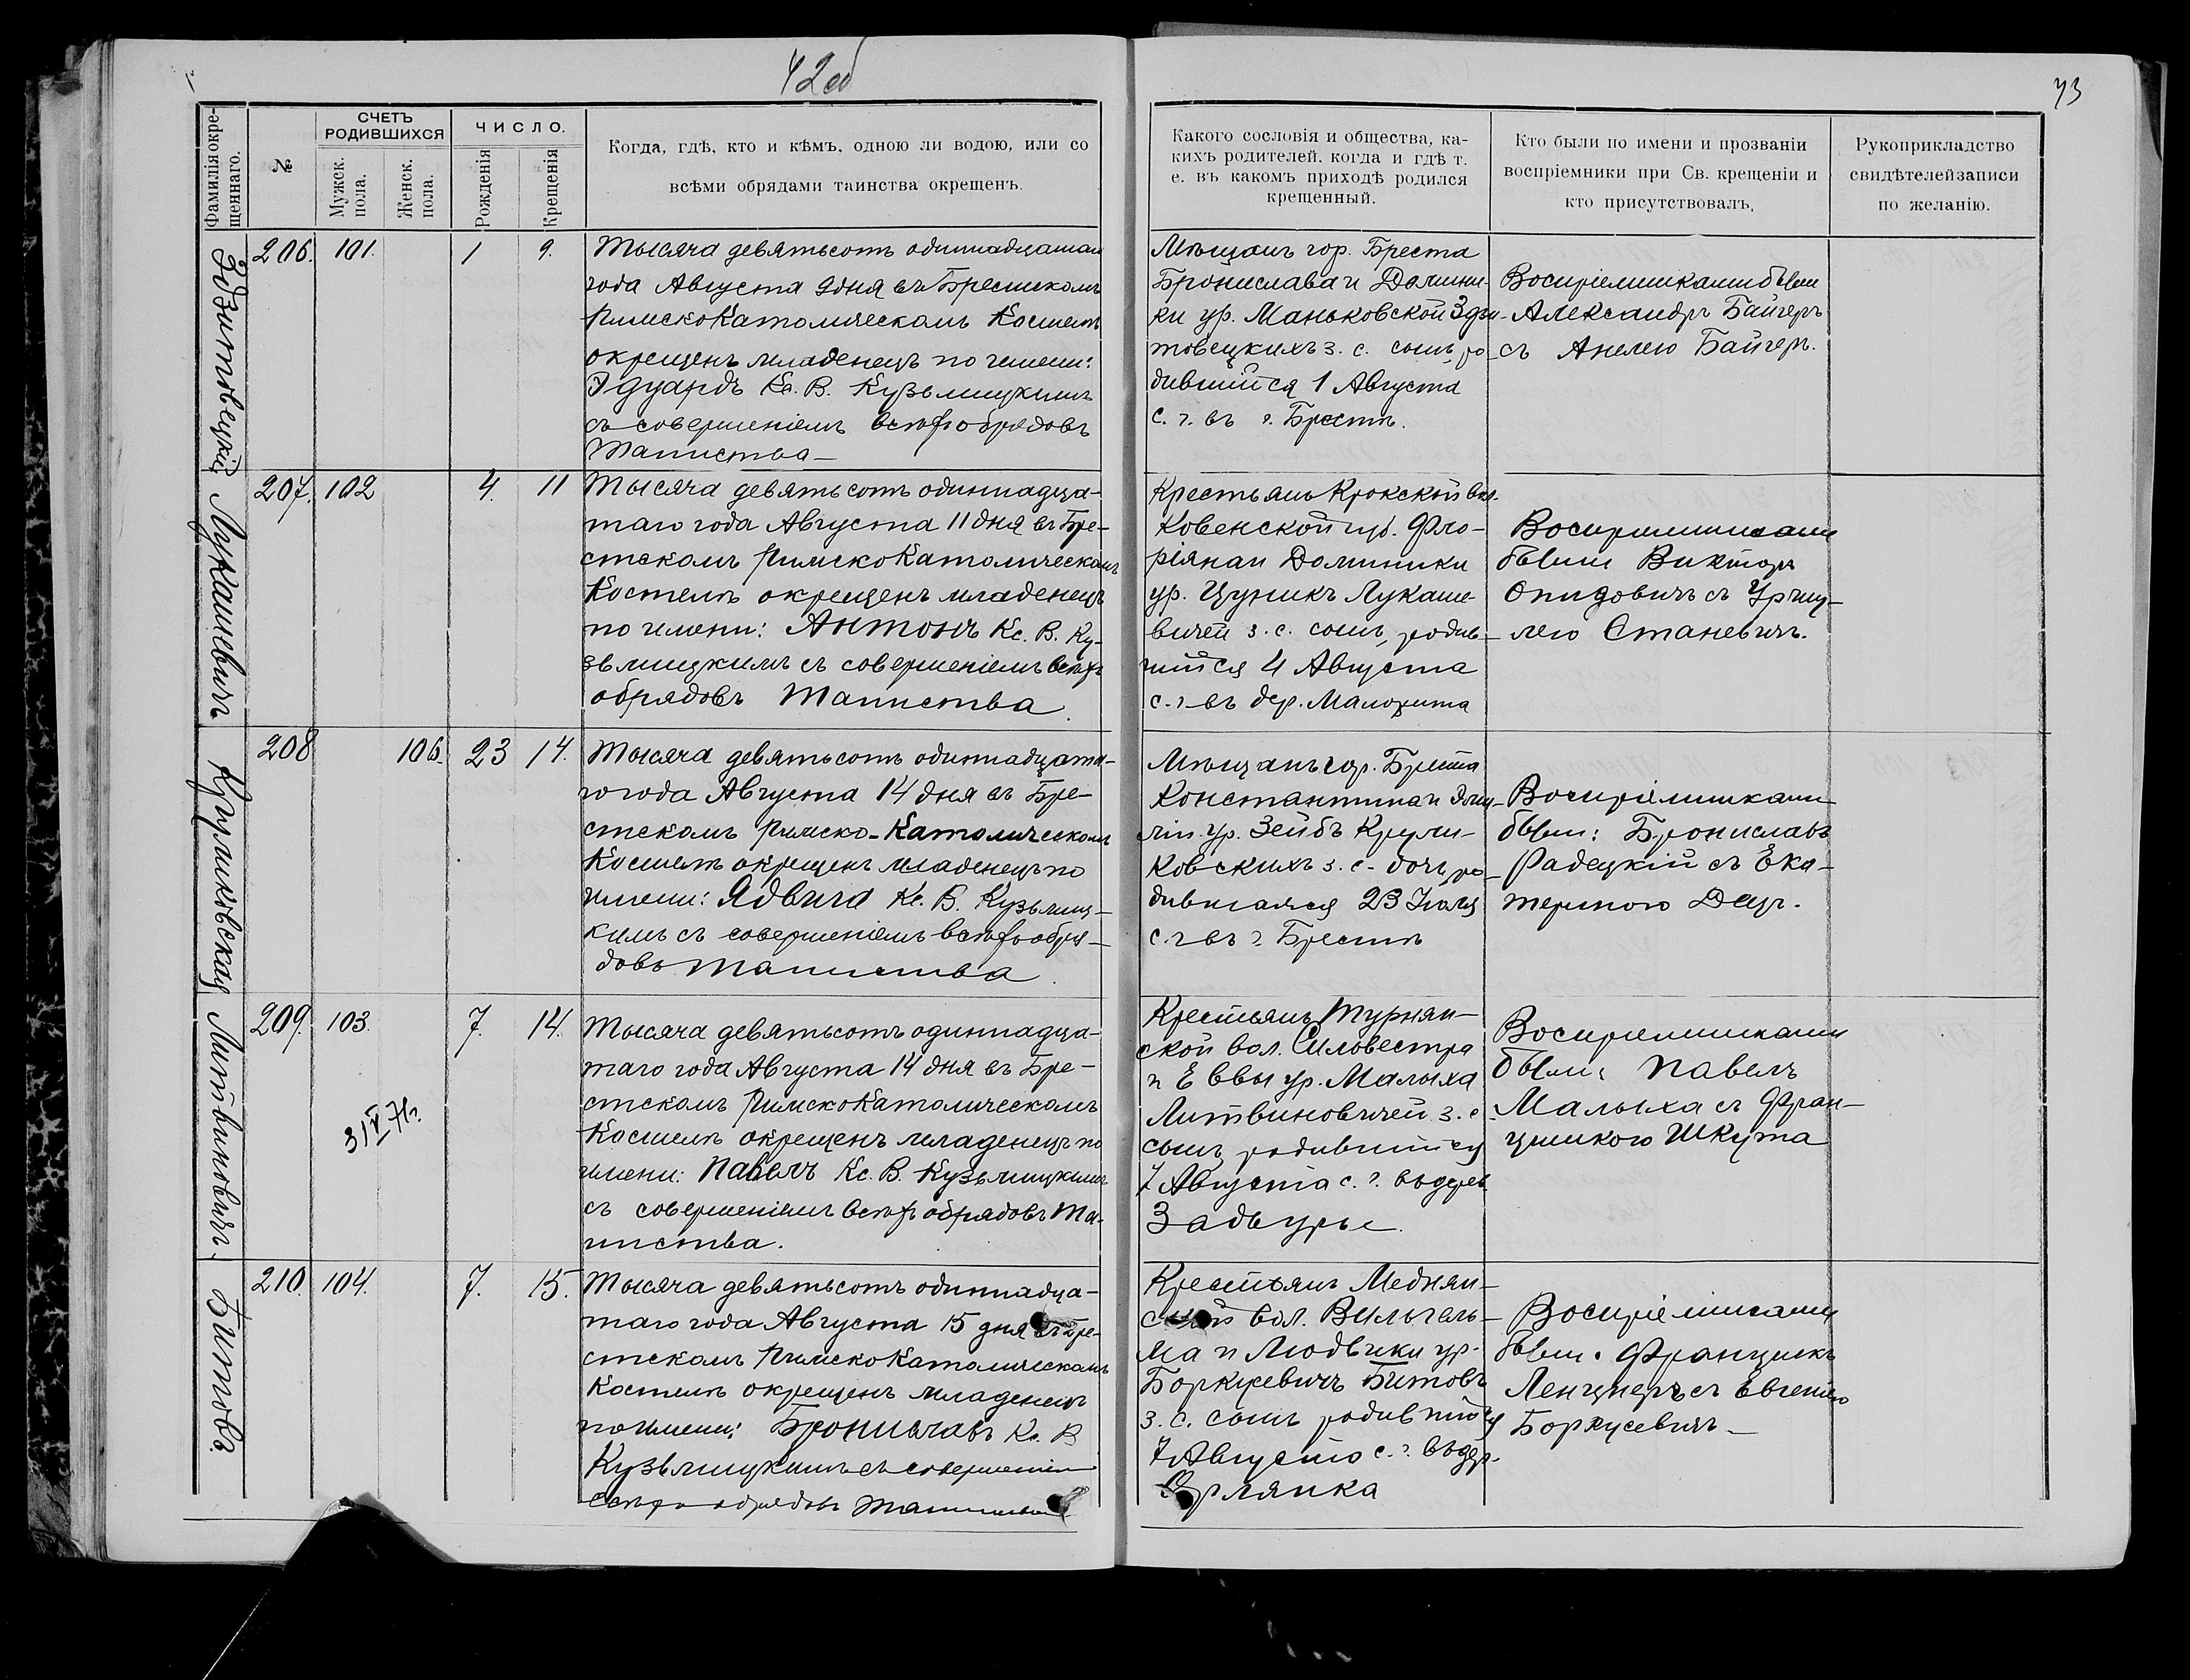 42об
73
Фамилія окре-
щеннаго.
№
СЧЕТЪ
РОДИВШИХСЯ
Мужск.
пола.
Женск.
пола.
ЧИСЛО.
Рожденія
Крещенія
Когда, гдѣ, кто и кѣмъ, одною ли водою, или со
всѣми обрядами таинства окрещенъ.
Какого сословія и общества, ка-
кихъ родителей, когда и гдѣ т.
е. въ какомъ приходѣ родился
крещенный.
Кто были по имени и прозванію
воспріемники при Св. крещеніи и
кто присутствовалъ.
Рукоприкладство
свидѣтелей записи
по желанію.
Здзитовецкій
206. 101. 1 9.
Тысяча девятьсотъ одиннадцатаго
года Августа 9 дня въ Брестскомъ
Римско Католическомъ Костелѣ
окрещенъ младенецъ по имени:
Эдуардъ Кс. В. Кузьмицкимъ
съ совершеніемъ всѣхъ обрядовъ
Таинства
Мѣщанъ гор. Бреста
Бронислава и Домини-
ки ур. Маньковской Здзи-
товецкихъ з. с. сынъ, ро-
дившійся 1 Августа
с. г. въ г. Брестѣ.
Воспріемниками были
Александръ Байгеръ
съ Анелею Байгеръ.
Лукашевичъ
207. 102 4. 11
Тысяча девятьсотъ одиннадца-
таго года Августа 11 дня въ Бре-
стскомъ Римско Католическомъ
Костелѣ окрещенъ младенецъ
по имени: Антонъ Кс. В. Ку-
зьмицкимъ съ совершеніемъ всѣхъ
обрядовъ Таинства.
Крестьянъ Крокской вол.
Ковенской губ. Фло-
ріяна и Доминики
ур. Цуникъ Лукаше-
вичей з. с. сынъ, родив-
шійся 4 Августа
с. г. въ дер. Малорита
Воспріемниками
были Викторъ
Опидовичъ съ Уршу-
лею Станевичъ.
Круликовская
208 106. 23 14.
Тысяча девятьсотъ одиннадцата-
го года Августа 14 дня въ Бре-
стскомъ Римско-Католическомъ
Костелѣ окрещенъ младенецъ по
имени: Ядвига Кс. В. Кузьмиц-
кимъ съ совершеніемъ всѣхъ обря-
довъ Таинства.
Мѣщанъ гор. Бреста
Константина и
ур. Зейбъ Крули-
ковскихъ з. с. дочь, ро-
дившаяся 23 Іюля
с. г. въ г. Брестѣ
Воспріемниками
были: Брониславъ
Радецкій съ Ека-
териною Дацъ.
Литвиновичъ
209. 103. 7. 14.
31 V 71г.
Тысяча девятьсотъ одиннадца-
таго года Августа 14 дня въ Бре-
стскомъ Римско Католическомъ
Костелѣ окрещенъ младенецъ по
имени: Павелъ Кс. В. Кузьмицкимъ
съ совершеніемъ всѣхъ обрядовъ Та-
инства.
Крестьянъ Турнян-
ской вол. Сильвестра
и Еввы ур. Малыха
Литвиновичей з. с.
сынъ родившійся
7 Августа с. г. въ дер.
Задворье.
Воспріемниками
были: Павелъ
Малыха съ Фран-
цишкою Шкута
Битовъ.
210. 104. 7. 15.
Тысяча девятьсотъ одиннадца-
таго года Августа 15 дня въ Бре-
стскомъ Римско Католическомъ
Костелѣ окрещенъ младенецъ
по имени: Брониславъ Кс. В
Кузьмицкимъ съ совершеніемъ
всѣхъ обрядовъ Таинства
Крестьянъ Меднян-
ской вол. Вильгель-
ма и Людвики ур.
Боркусевичъ Битовъ
з. с. сынъ родившійся
7 Августа с. г. въ дер.
Орлянка
Воспріемниками
были: Францискъ
Ленцнеръ съ Евгеніею
Боркусевичъ